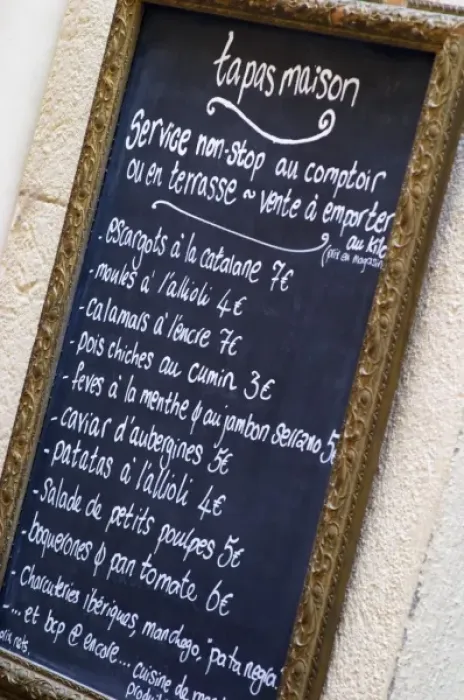 tapas maison
Service non-stop au comptoir
ou en terrasse ~ vente à emporter
au kilo
(prix au magasin
- escargots à la catalane 7€
- moules à l'allioli 4€
- calamars à l'encre 7€
- pois chiches au cumin 3€
- fèves à la menthe & au jambon serrano 5€
- caviar d'aubergines 5€
- patatas à l'allioli 4€
- salade de petits poulpes 5€
- boquerones & pan tomate 6€
- charcuteries ibériques, manchego, "pata negra
- ... et bcp @ encore... cuisine de
prix nets.